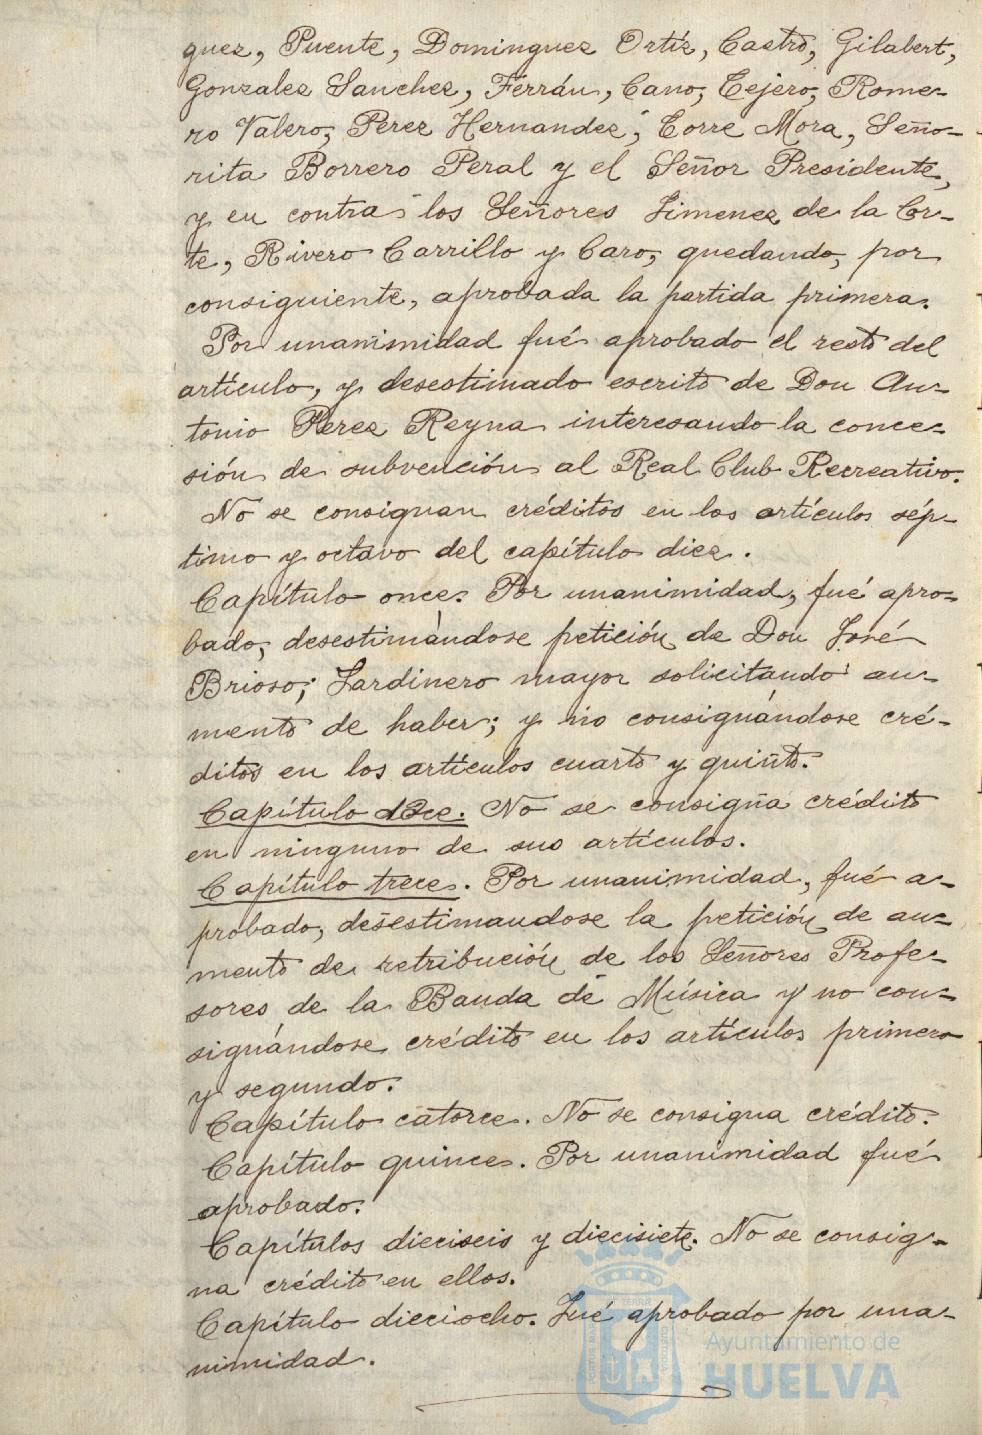 guez, Puente, Dominguez Ortíz, Castro, Gilabert,
Gonzalez Sanchez, Ferrán, Cano, Tejero, Rome-
ro Valero, Perez Hernandez, Torre Mora, Seño-
rita Borrero Peral y el Señor Presidente,
y en contra los Señores Jimenez de la Cor-
te, Rivero Carrillo y Caro, quedando, por
consiguiente, aprobada la partida primera.
Por unanimidad fué aprobado el resto del
artículo, y desestimado escrito de Don An-
tonio Perez Reyna interesando la conce-
sión de subvención al Real Club Recreativo.
No se consignan créditos en los artículos sép-
timo y octavo del capítulo diez.
Capítulo once. Por unanimidad, fué apro-
bado, desestimándose petición de Don José
Brioso, Jardinero mayor solicitando au-
mento de haber; y no consignándose cré-
ditos en los artículos cuarto y quinto.
Capítulo doce. No se consigna crédito
en ninguno de sus artículos.
Capítulo trece. Por unanimidad, fué a-
probado, desestimandose la petición de au-
mento de retribución de los Señores Profe-
sores de la Banda de Música y no con-
signándose crédito en los artículos primero
y segundo.
Capítulo catorce. No se consigna crédito.
Capítulo quince. Por unanimidad fué
aprobado.
Capítulos dieciseis y diecisiete. No se consig-
na crédito en ellos.
Capítulo dieciocho. Fué aprobado por una-
nimidad.
Ayuntamiento de
HUELVA